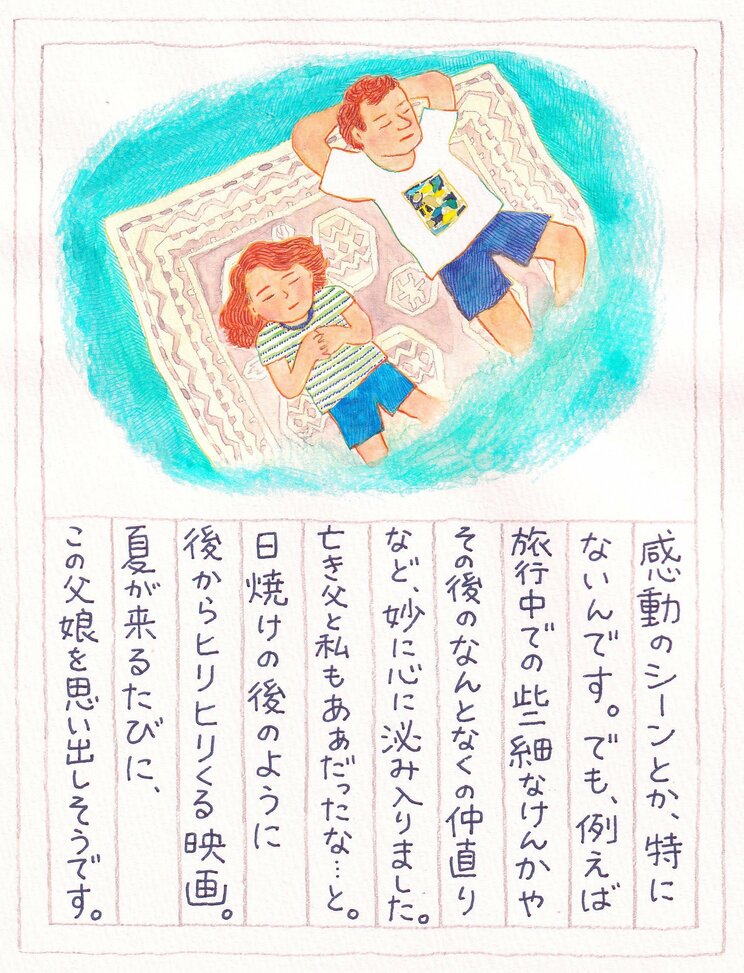 感動のシーンとか、特に
ないんです。でも、例えば
旅行中での些細なけんかや
その後のなんとなくの仲直り
など、妙に心に泌み入りました。
亡き父と私もあぁだったな…と。
日焼けの後のように
後からヒリヒリくる映画。
夏が来るたびに、
この父娘を思い出しそうです。